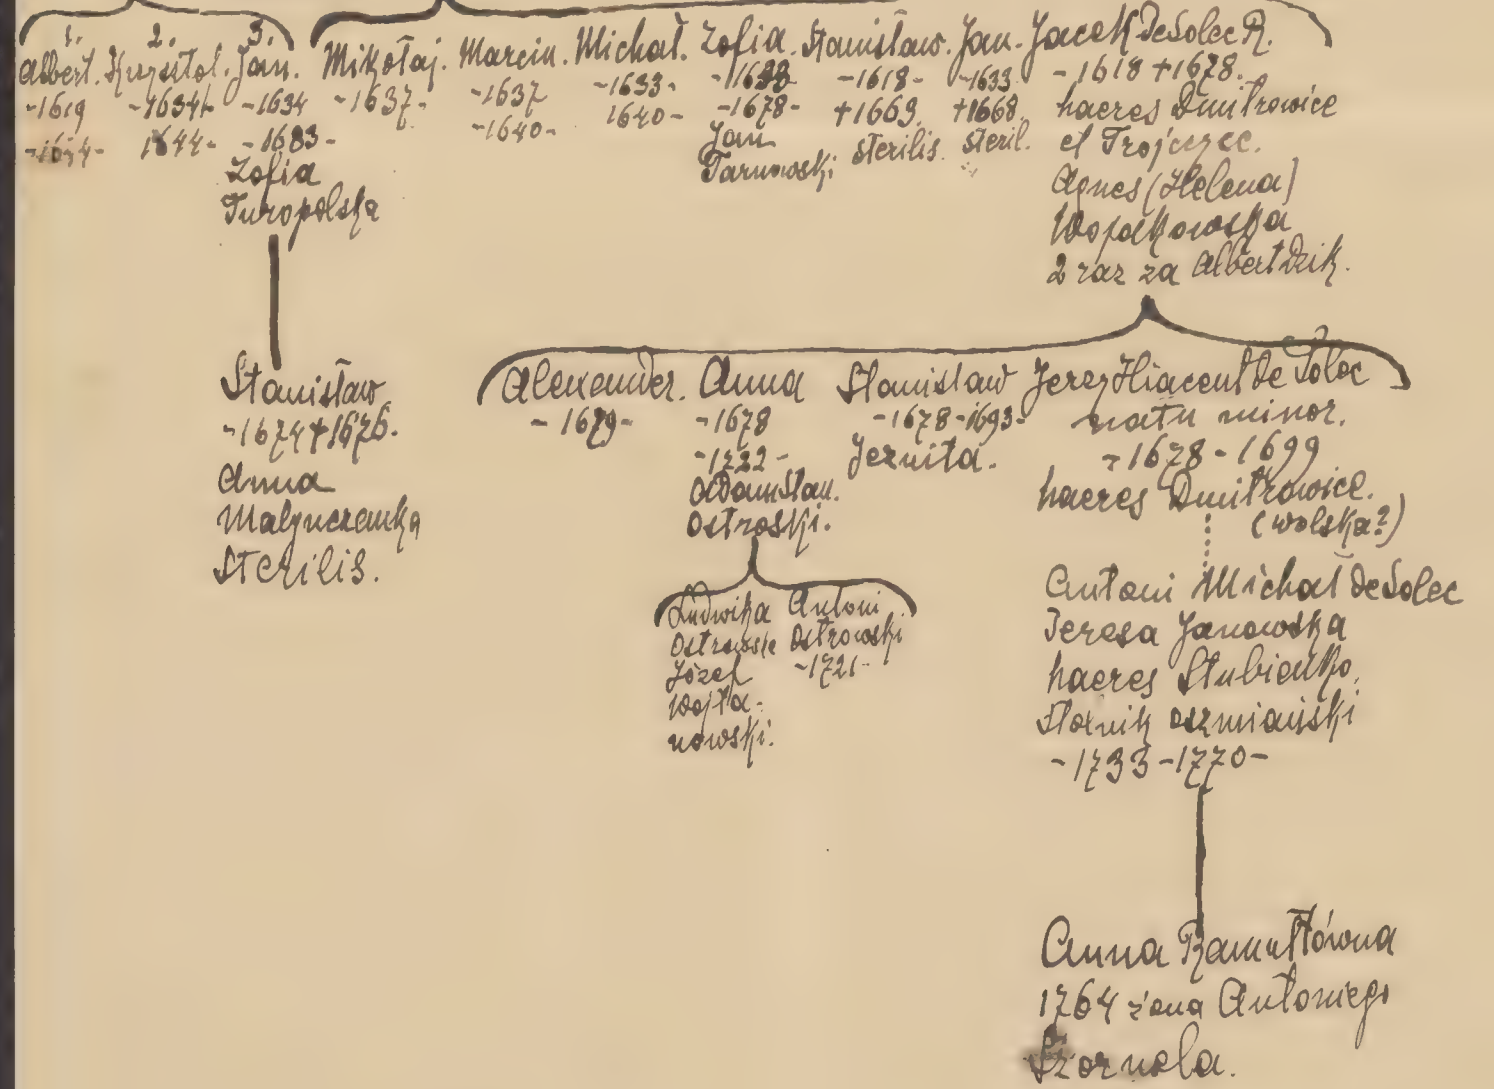 1.
Albert.
-1619
2.
Krzysztof.
-1634
1644-
3.
Jan.
-1634
-1683-
Zofia
Turopolska
Mikołaj.
-1637-
Marcin.
-1637
-1640-
Michał.
-1633-
1640-
Zofia.
-1678-
Jan
Tarnowski
Stanisław.
-1618-
+1669.
sterilis.
Jan.
-1633
+1668.
steril.
Jacek de Solec R.
-1618 +1678.
haeres Dmitrowice
et Trojczyc.
Agnes (Helena)
2 raz za Albert Dzik.
Stanisław
-1674 +1676.
Anna
Sterilis.
Alexander.
-1679-
Anna
-1678
-1722-
Adam Stan.
Ostroski.
Stanisław
-1678-1693-
Jezuita.
Jerzy Hiacent de Solec
natu minor.
-1678-1699
haeres Dmitrowice.
(Wolska?)
Ludwika
Ostrowska
Józef
Wojta-
nowski.
Antoni
Ostrowski
-1721-
Antoni Michał de Solec
Teresa Janowska
haeres Stubienko.
Stolnik oszmiański
-1733-1770-
Anna Ramułtówna
1764 żona Antoniego
Szornela.